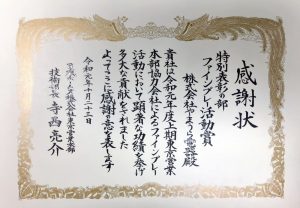 感謝状
特別表彰の部
ファインプレー活動賞
株式会社やまつ電器殿
貴社は令和元年度上期東京営業
本部協力会社によるファインプレー
活動において顕著な功績を挙げ
多大な貢献をされました
よってここに感謝の意を表します
令和元年十月二十三日
株式会社東京営業本部
技術部長